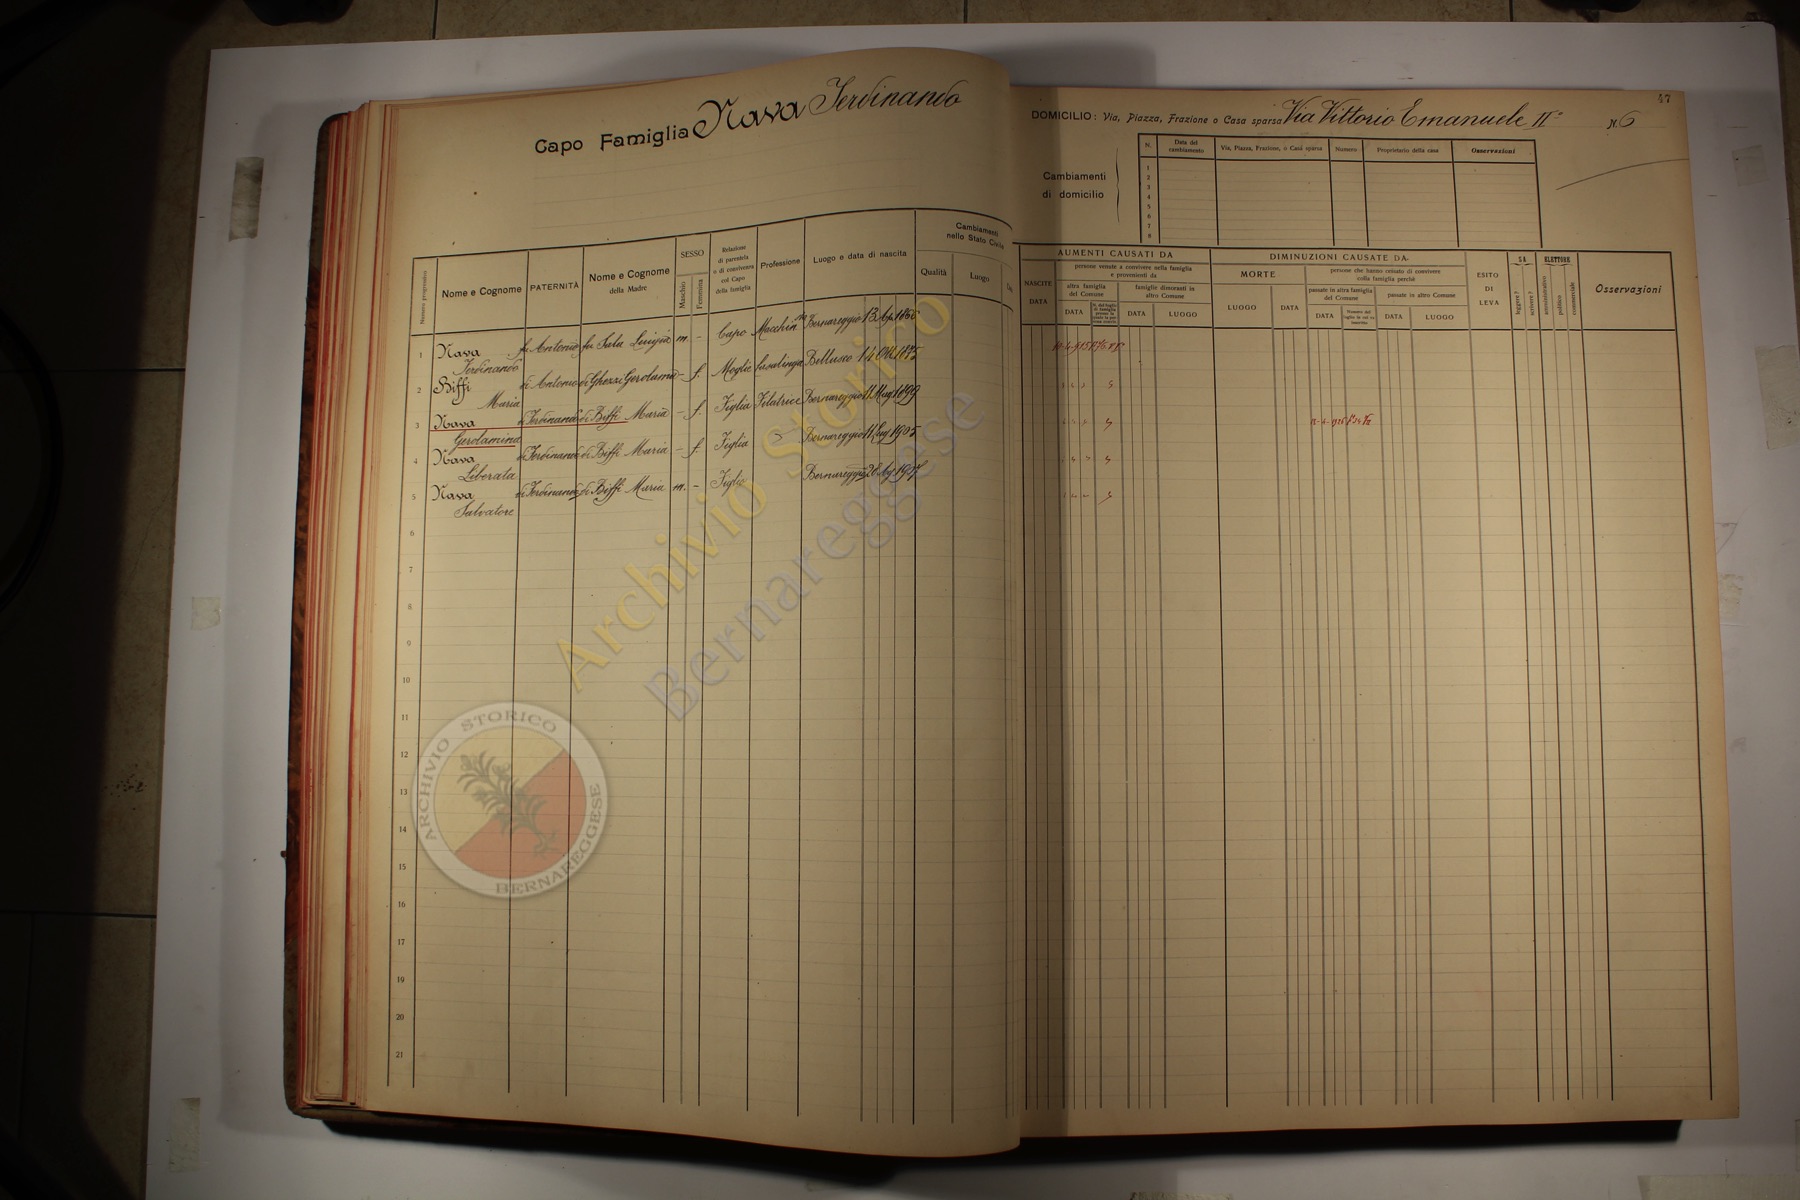 Capo Famiglia Nava Ferdinando
47
DOMICILIO: Via, Piazza, Frazione o Casa sparsa Via Vittorio Emanuele II° N. 6
Cambiamenti
di domicilio
N. Data del cambiamento Via, Piazza, Frazione, o Casa sparsa Numero Proprietario della casa Osservazioni
1
2
3
4
5
6
7
8
Numero progressivo
Nome e Cognome
PATERNITÀ
Nome e Cognome
della Madre
SESSO
Maschio
Femmina
Relazione
di parentela
o di convivenza
col Capo
della famiglia
Professione
Luogo e data di nascita
Cambiamenti
nello Stato Civile
Qualità
Luogo
AUMENTI CAUSATI DA
NASCITE
DATA
persone venute a convivere nella famiglia
e provenienti da
altra famiglia
del Comune
DATA
famiglie dimoranti in
altro Comune
DATA
LUOGO
DIMINUZIONI CAUSATE DA
MORTE
LUOGO
DATA
persone che hanno cessato di convivere
colla famiglia perchè
passate in altra famiglia
del Comune
DATA
passate in altro Comune
DATA
LUOGO
ESITO
DI
LEVA
SA
leggere?
scrivere?
ELETTORE
amministrativo
politico
commerciale
Osservazioni
1 Nava Ferdinando fu Antonio fu Sala Luigia m. - Capo Bernareggio 13
2 Biffi Maria di Antonio di Ghezzi Gerolama - f. Moglie Casalinga Bellusco 14 Ott. 1875
3 Nava Gerolamina di Ferdinando di Biffi Maria - f. Figlia Filatrice Bernareggio 11 Mag 1899
4 Nava Liberata di Ferdinando di Biffi Maria - f. Figlia Bernareggio 11 1905
5 Nava Salvatore di Ferdinando di Biffi Maria m. - Figlio Bernareggio 28 1907
6
7
8
9
10
11
12
13
14
15
16
17
18
19
20
21
Archivio Storico
Bernareggese
ARCHIVIO STORICO
BERNAREGGESE